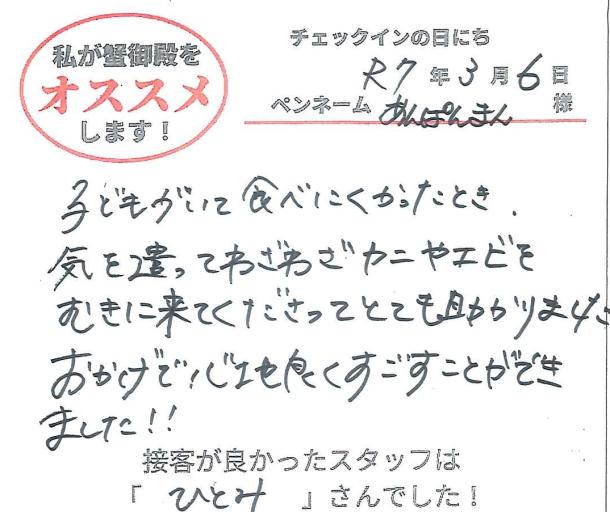 私が蟹御殿を
オススメ
します！
チェックインの日にち
R7年3月6日
ペンネーム あんぱんまん 様
子どもがいて食べにくかったとき、
気を遣ってわざわざカニやエビを
むきに来てくださってとても助かりました
おかげで心地良くすごすことができ
ました!!
接客が良かったスタッフは
「 ひとみ 」さんでした！